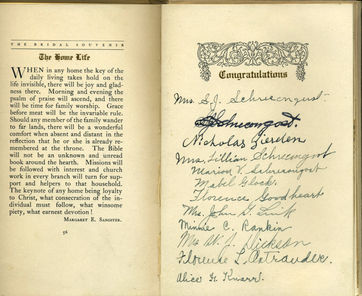 THE BRIDAL SOUVENIR
The Home Life
WHEN in any home the key of the
daily living takes hold on the
life invisible, there will be joy and glad-
ness there. Morning and evening the
psalm of praise will ascend, and there
will be time for family worship. Grace
before meat will be the invariable rule.
Should any member of the family wander
to far lands, there will be a wonderful
comfort when absent and distant in the
reflection that he or she is already re-
membered at the throne. The Bible
will not be an unknown and unread
book around the hearth. Missions will
be followed with interest and church
work in every branch will turn for sup-
port and helpers to that household.
The keynote of any home being loyalty
to Christ, what consecration of the in-
dividual must follow, what winsome
piety, what earnest devotion!
MARGARET E. SANGSTER.
56
Congratulations
Mrs. S. J. Schrecongost.
Schrecongost.
Nicholas Zierden
Mrs. Lillian Schrecongost
Marion V. Schrecongost
Mabel Glock.
Florence Goodheart
Mrs. John D.
Minnie C. Rankin
Mrs W. J. Dickson
Florence L.
Alice G. Knarr.